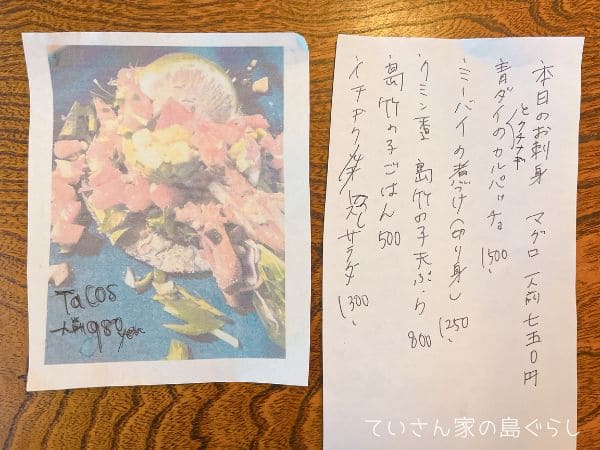 Tacos
一人前980yen
本日のお刺身 マグロ 一人前 七五〇円
青ダイのカルパッチョ 1500、
とクチナギ
ミーバイの煮づけ(切り身) 1250、
クミン香 島竹の子天ぷら 800
島竹の子ごはん 500
イチャガラ サラダ 1300、
ていさん家の島ぐらし